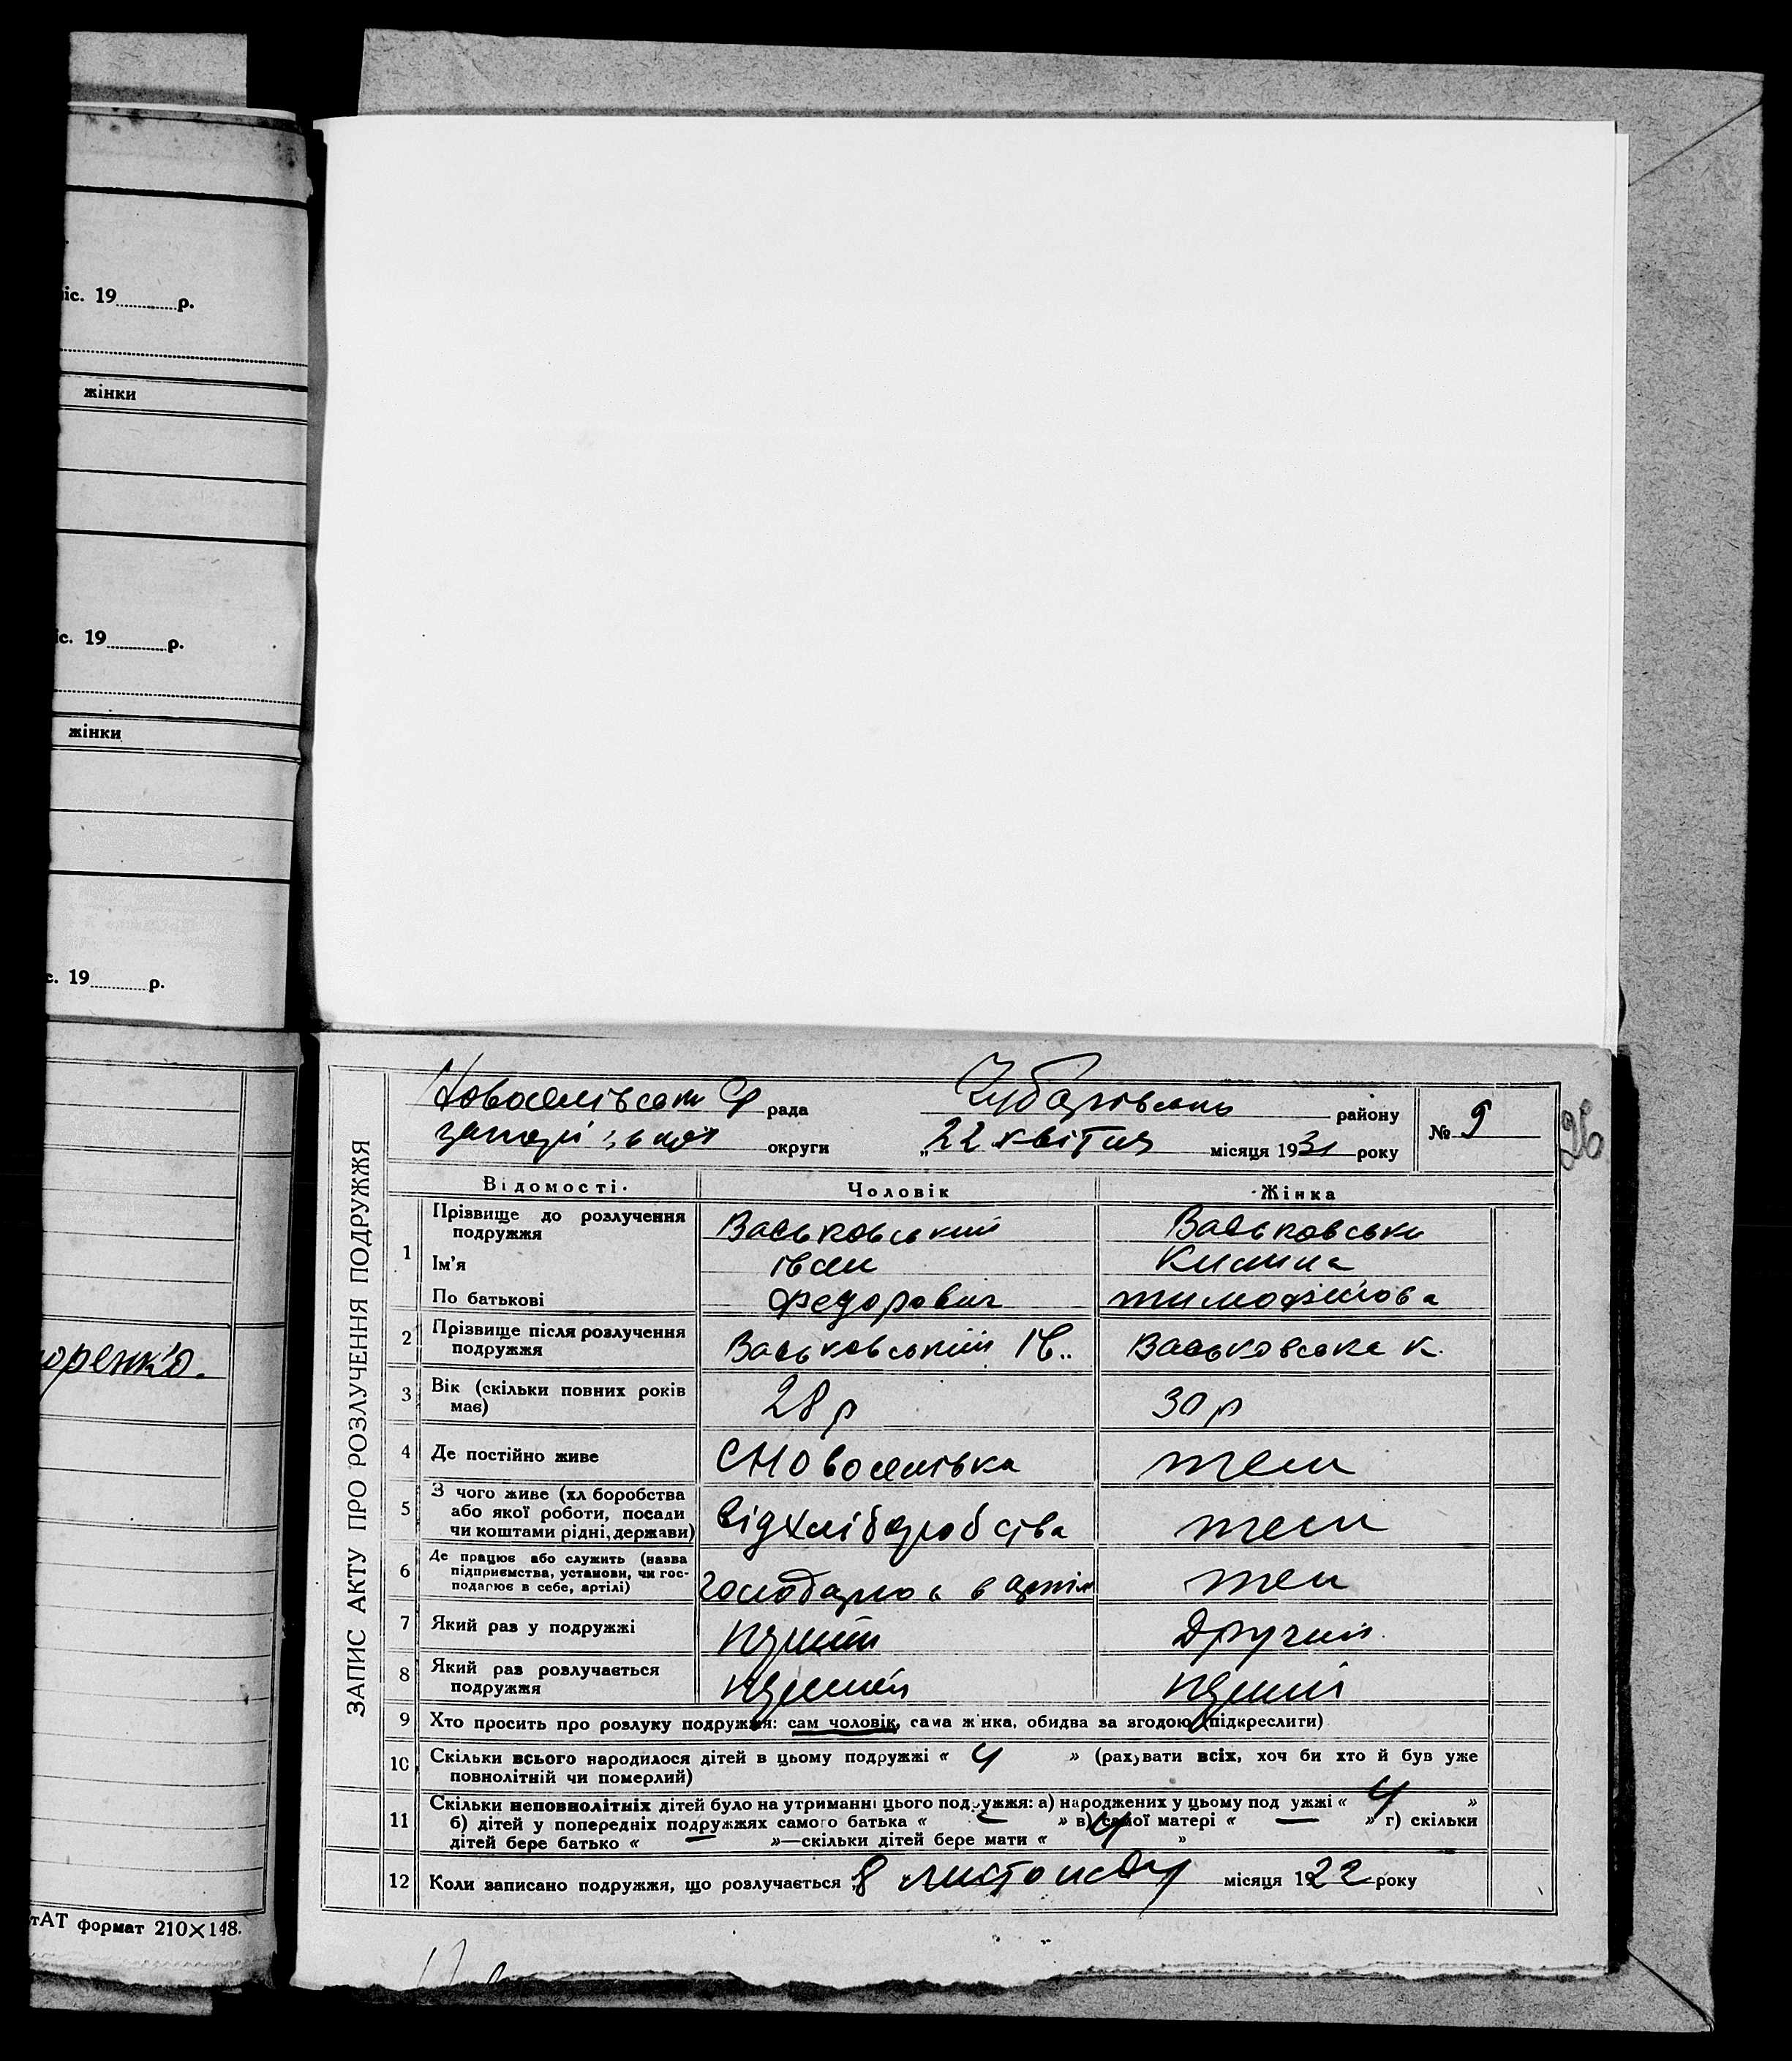 іс. 19 р.
жінки
іс. 19 р.
жінки
с. 19 р.
оренко.
тАТ формат 210×148.
ЗАПИС АКТУ ПРО РОЗЛУЧЕННЯ ПОДРУЖЖЯ
рада
району
№ 9
26
округи
„22 квітня місяця 1931 року
Відомості.
Чоловік
Жінка
1
Прізвище до розлучення подружжя
Васьковський
Васьковська
Ім'я
іван
Килина
По батькові
Федорович
тимофіїова
2
Прізвище після розлучення подружжя
Васьковський Ів..
Васьковська К.
3
Вік (скільки повних років має)
28 р
30 р
4
Де постійно живе
с Новоселівка
теж
5
З чого живе (хл боробства або якої роботи, посади чи коштами рідні, держави)
від хліборобства
теж
6
Де працює або служить (назва підприємства, установи, чи господарює в себе, артілі)
господарює в артілі
теж
7
Який раз у подружжі
перший
другий
8
Який раз розлучається подружжя
перший
перший
9
Хто просить про розлуку подружжя: сам чоловік, сама ж нка, обидва за згодою (підкреслити)
10
Скільки всього народилося дітей в цьому подружжі « 4 » (рахувати всіх, хоч би хто й був уже
повнолітній чи померлий)
11
Скільки неповнолітніх дітей було на утриманні цього подружжя: а) народжених у цьому под ужжі « 4 »
б) дітей у попередніх подружжях самого батька « — » в) самої матері « — » г) скільки
дітей бере батько « — »—скільки дітей бере мати « 4 »
12
Коли записано подружжя, що розлучається „8 листопаду місяця 1922 року